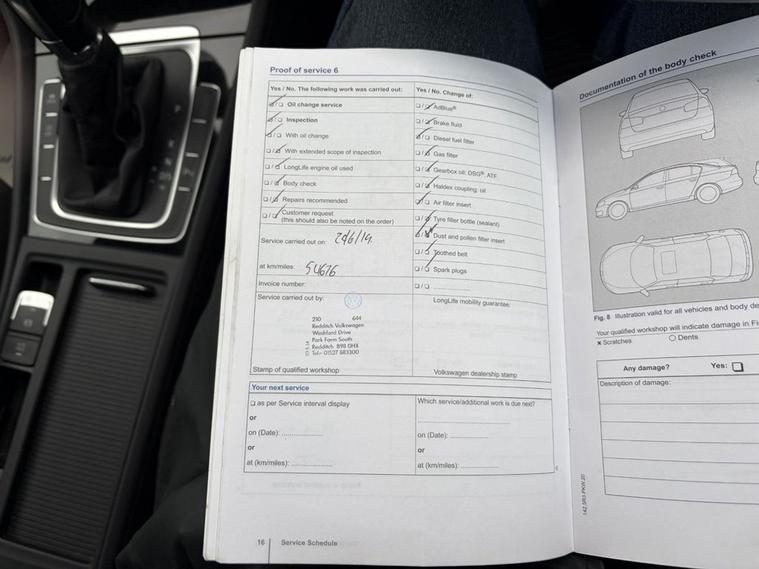 Proof of service 6
Yes / No. The following work was carried out:
❑/❑ Oil change service
❑/❑ Inspection
❑/❑ With oil change
❑/❑ With extended scope of inspection
❑/❑ LongLife engine oil used
❑/❑ Body check
❑/❑ Repairs recommended
❑/❑ Customer request
(this should also be noted on the order)
Service carried out on:
at km/miles: 54676
Invoice number:
Service carried out by:
210 644
Redditch Volkswagen
Washford Drive
Park Farm South
Redditch B98 0HX
Tel:- 01527 883300
Stamp of qualified workshop
Yes / No. Change of:
❑/❑ AdBlue®
❑/❑ Brake fluid
❑/❑ Diesel fuel filter
❑/❑ Gas filter
❑/❑ Gearbox oil: DSG®, ATF
❑/❑ Haldex coupling: oil
❑/❑ Air filter insert
❑/❑ Tyre filler bottle (sealant)
❑/❑ Dust and pollen filter insert
❑/❑ Toothed belt
❑/❑ Spark plugs
❑/❑
LongLife mobility guarantee:
Volkswagen dealership stamp
Your next service
❑ as per Service interval display
or
on (Date): ..............
or
at (km/miles): ..............
Which service/additional work is due next?
on (Date): ..............
or
at (km/miles): ..............
16 Service Schedule
Documentation of the body check
Fig. 8 Illustration valid for all vehicles and body de
Your qualified workshop will indicate damage in Fi
× Scratches ○ Dents
Any damage? Yes: ❑
Description of damage:
142.5R3.PKW.20